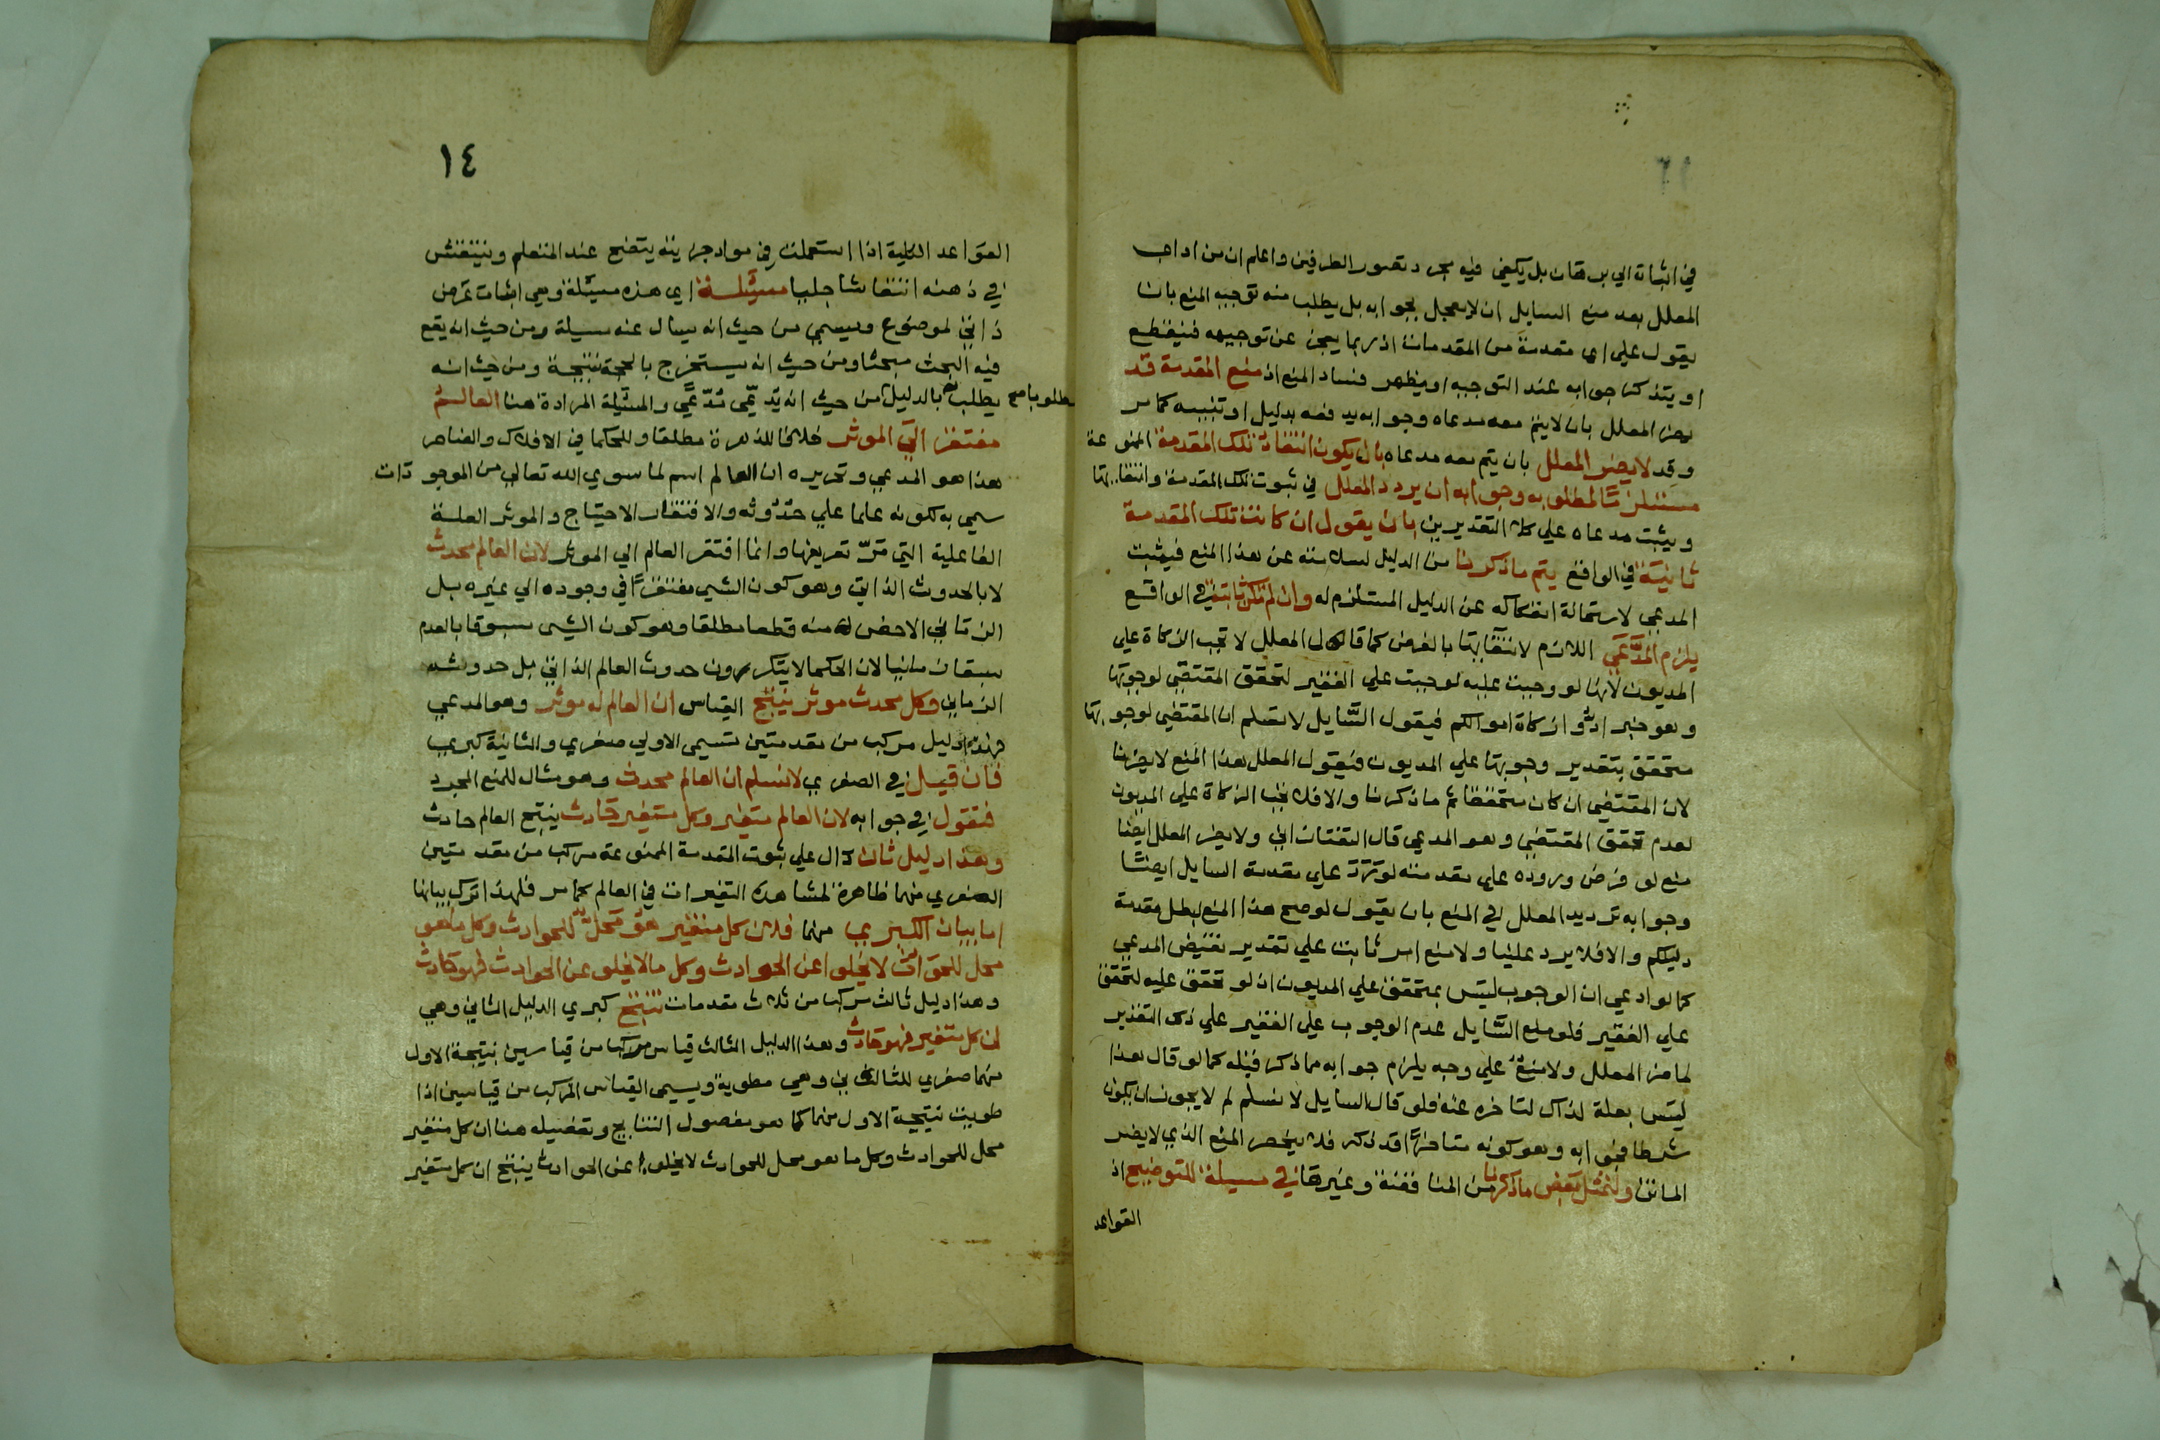 في اثباته الي برهان بل يكفي فيه مجرد تصور الطرفين واعلم ان من اداب
المعلل بعد منع السايل ان لا يعجل بجوابه بل يطلب منه توجيه المنع بان
يقول علي اي مقدمة من المقدمات اذ ربما يعجز عن توجيهه فينقطع
او يتذكر جوابه عند التوجيه او يظهر فساد المنع اذ منع المقدمة قد
يضر المعلل بان لا يتم معه مدعاه وجوابه يدفعه بدليل او تنبيه كما مر
وقد لا يضر المعلل بان يتم معه مدعاه بان يكون انتفاء تلك المقدمة الممنوعة
مستلزما للمطلوبه وجوابه ان يردد المعلل في ثبوت تلك المقدمة وانتفائها
ويثبت مدعاه علي كلا التقديرين بان يقول ان كانت تلك المقدمة
ثابتة في الواقع يتم ما ذكرنا من الدليل لسلامته عن هذا المنع فيثبت
المدعي لاستحالة انفكاكه عن الدليل المستلزم له وان لم تكن ثابتة في الواقع
يلزم المدعي اللازم لانتفايها بالفرض كما قال المعلل لا تجب الزكاة علي
المديون لانها لو وجبت عليه لوجبت علي الفقير لتحقق المقتضي لوجوبها
وهو خبر ادوا زكاة اموالكم فيقول السايل لا نسلم ان المقتضي لوجوبها
متحقق بتقدير وجوبها علي المديون فيقول المعلل هذا المنع لا يضرنا
لان المقتضي ان كان متحققا تم ما ذكرنا والا فلا تجب الزكاة علي المديون
لعدم تحقق المقتضي وهو المدعي قال التفتازاني ولا يضر المعلل ايضا
منع لو فرض وروده علي مقدمته لورد علي مقدمة السايل ايضا
وجوابه ترديد المعلل في المنع بان يقول لو صح هذا المنع لبطل مقدمة
دليلكم والا فلا يرد علينا ولا منع امر ثابت علي تقدير نقيض المدعي
كما لو ادعي ان الوجوب ليس بمتحقق علي المديون اذ لو تحقق عليه لتحقق
علي الفقير فلو منع السايل عدم الوجوب علي الفقير علي ذلك التقدير
لما ضر المعلل ولا منع علي وجه يلزم جوابه مما ذكر قبله كما لو قال هذا
ليس بعلة لذاك لتاخره عنه فلو قال السايل لا نسلم لم لا يجوز ان يكون
شرطا فجوابه وهو كونه متاخرا قد ذكر فلا ينحصر المنع الذي لا يضر
الماتن ولنمثل بعض ما ذكرنا من المناقضة وغيرها في مسيلة للتوضيح اذ
القواعد
١٤
القواعد الكلية اذا استعملت في مواد جزيية يتضح عند المتعلم وينتقش
في ذهنه انتقاشا جليا مسيلة اي هذه مسيلة وهي اثبات عرض
ذاتي لموضوع ويسمي من حيث انه يسال عنه مسيلة ومن حيث انه يقع
فيه البحث مبحثا ومن حيث انه يستخرج بالحجة نتيجة ومن حيث انه
يطلب بالدليل مطلوبا صح من حيث انه يدعي مدعي والمسيلة المرادة هنا العالم
مفتقر الي الموثر خلافا للدهرة مطلقا وللحكما في الافلاك والعناصر
هذا هو المدعي وتحريره ان العالم اسم لما سوي الله تعالي من الموجودات
سمي به لكونه علما علي حدوثه والافتقار الاحتياج والموثر العلة
الفاعلية التي مر تعريفها وانما افتقر العالم الي الموثر لان العالم محدث
لا بالحدوث الذاتي وهو كون الشي مفتقرا في وجوده الي غيره بل
الزماني الاخص منه قطعا مطلقا وهو كون الشي مسبوقا بالعدم
سبقا زمانيا لان الحكما لا ينكرون حدوث العالم الذاتي بل حدوثه
الزماني وكل محدث موثر ينتج القياس ان العالم له موثر وهو المدعي
فهذا دليل مركب من مقدمتين تسمي الاولي صغري والثانية كبري
فان قيل في الصغري لا نسلم ان العالم محدث وهو مثال للمنع المجرد
فنقول في جوابه لان العالم متغير وكل متغير حادث ينتج العالم حادث
وهذا دليل ثان دال علي ثبوت المقدمة الممنوعة مركب من مقدمتين
الصغري منهما ظاهرة لمشاهدة التغيرات في العالم كما مر فلهذا ترك بيانها
اما بيان الكبري منهما فلان كل متغير هو محل للحوادث وكل ما هو
محل للحوادث لا يخلوا عن الحوادث وكل ما لا يخلو عن الحوادث فهو حادث
وهذا دليل ثالث مركب من ثلاث مقدمات ينتج كبري الدليل الثاني وهي
ان كل متغير فهو حادث وهذا الدليل الثالث قياس مركب من قياسين نتيجة الاول
منهما صغري للثاني وهي مطوية ويسمي القياس المركب من قياسين اذا
طويت نتيجة الاول منهما كما هو مفصول النتايج وتفصيله هنا ان كل متغير
محل للحوادث وكل ما هو محل للحوادث لا يخلو عن الحوادث ينتج ان كل متغير